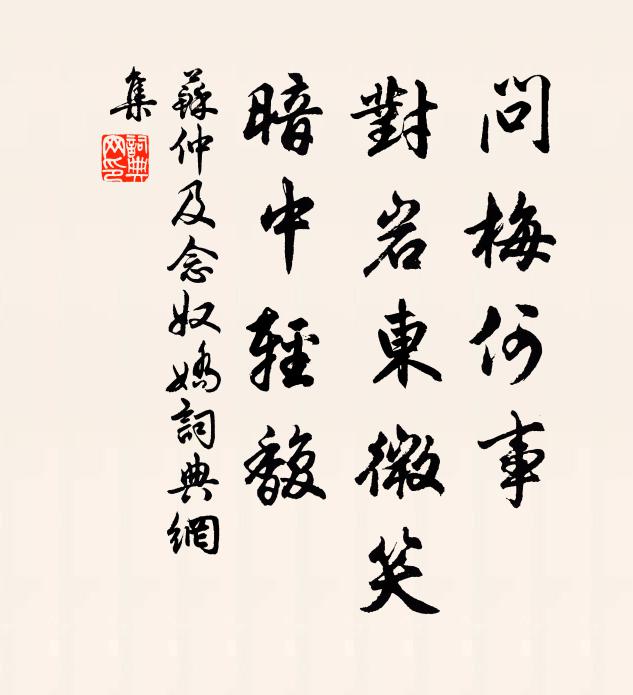 問梅何事
對岩東微笑
暗中輕馥
蘇仲及念奴嬌詞典網
集
詞典網印